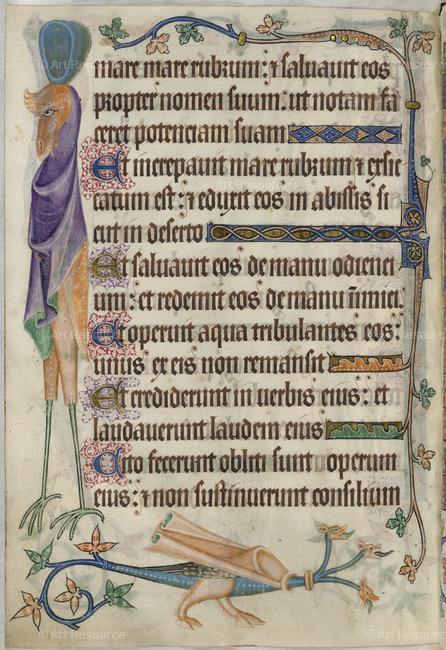 mare mare rubrum: ⁊ saluauit eos
propter nomen suum: ut notam fa
ceret potenciam suam
Et increpauit mare rubrum ⁊ exsic
catum est: ⁊ eduxit eos in abissis si
cut in deserto
Et saluauit eos de manu odienci
um: et redemit eos de manu inimici.
Et operuit aqua tribulantes eos:
unus ex eis non remansit
Et crediderunt in uerbis eius: et
laudauerunt laudem eius
Cito fecerunt obliti sunt operum
eius: ⁊ non sustinuerunt consilium
© Art Resource
© Art Resource
© Art Resource